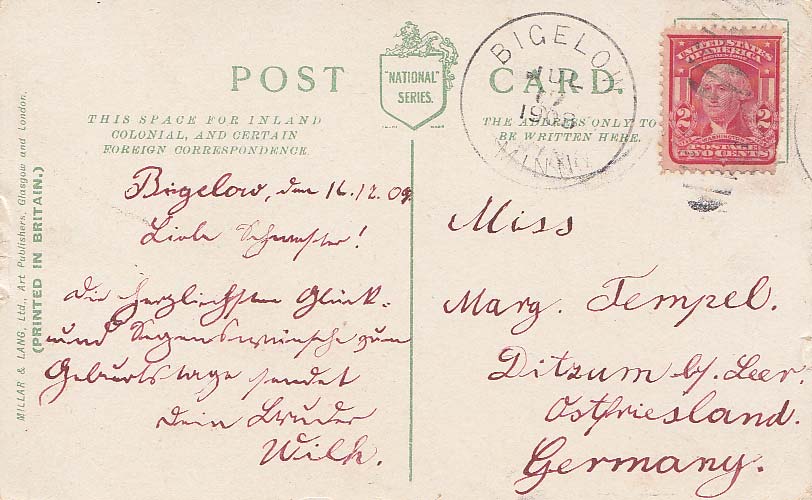 POST CARD.
"NATIONAL"
SERIES.
THIS SPACE FOR INLAND
COLONIAL, AND CERTAIN
FOREIGN CORRESPONDENCE.
THE ADDRESS ONLY TO
BE WRITTEN HERE.
BIGELOW
JUL
17
1908
MINN
UNITED STATES
OF AMERICA
2 2
WASHINGTON
POSTAGE
TWO CENTS
MILLAR & LANG, Ltd., Art Publishers, Glasgow and London.
(PRINTED IN BRITAIN.)
Bigelow, den 16.12.09
Liebe Schwester!
Die herzlichsten Glück-
und Segenswünsche zum
Geburtstage sendet
Dein Bruder
Wilh.
Miss
Marg. Tempel.
Ditzum b/. Leer.
Ostfriesland.
Germany.